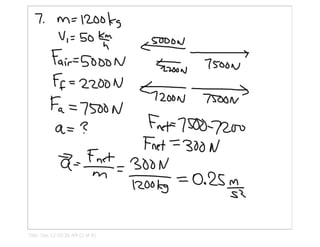 7. m=1200kg
V₁ = 50 km/h
Fair=5000N
Ff = 2200N
Fa = 7500N
a = ?
5000N
2200N
7500N
7200N
7500N
Fnet=7500-7200
Fnet = 300N
a = Fnet/m = 300N/1200kg = 0.25 m/s²